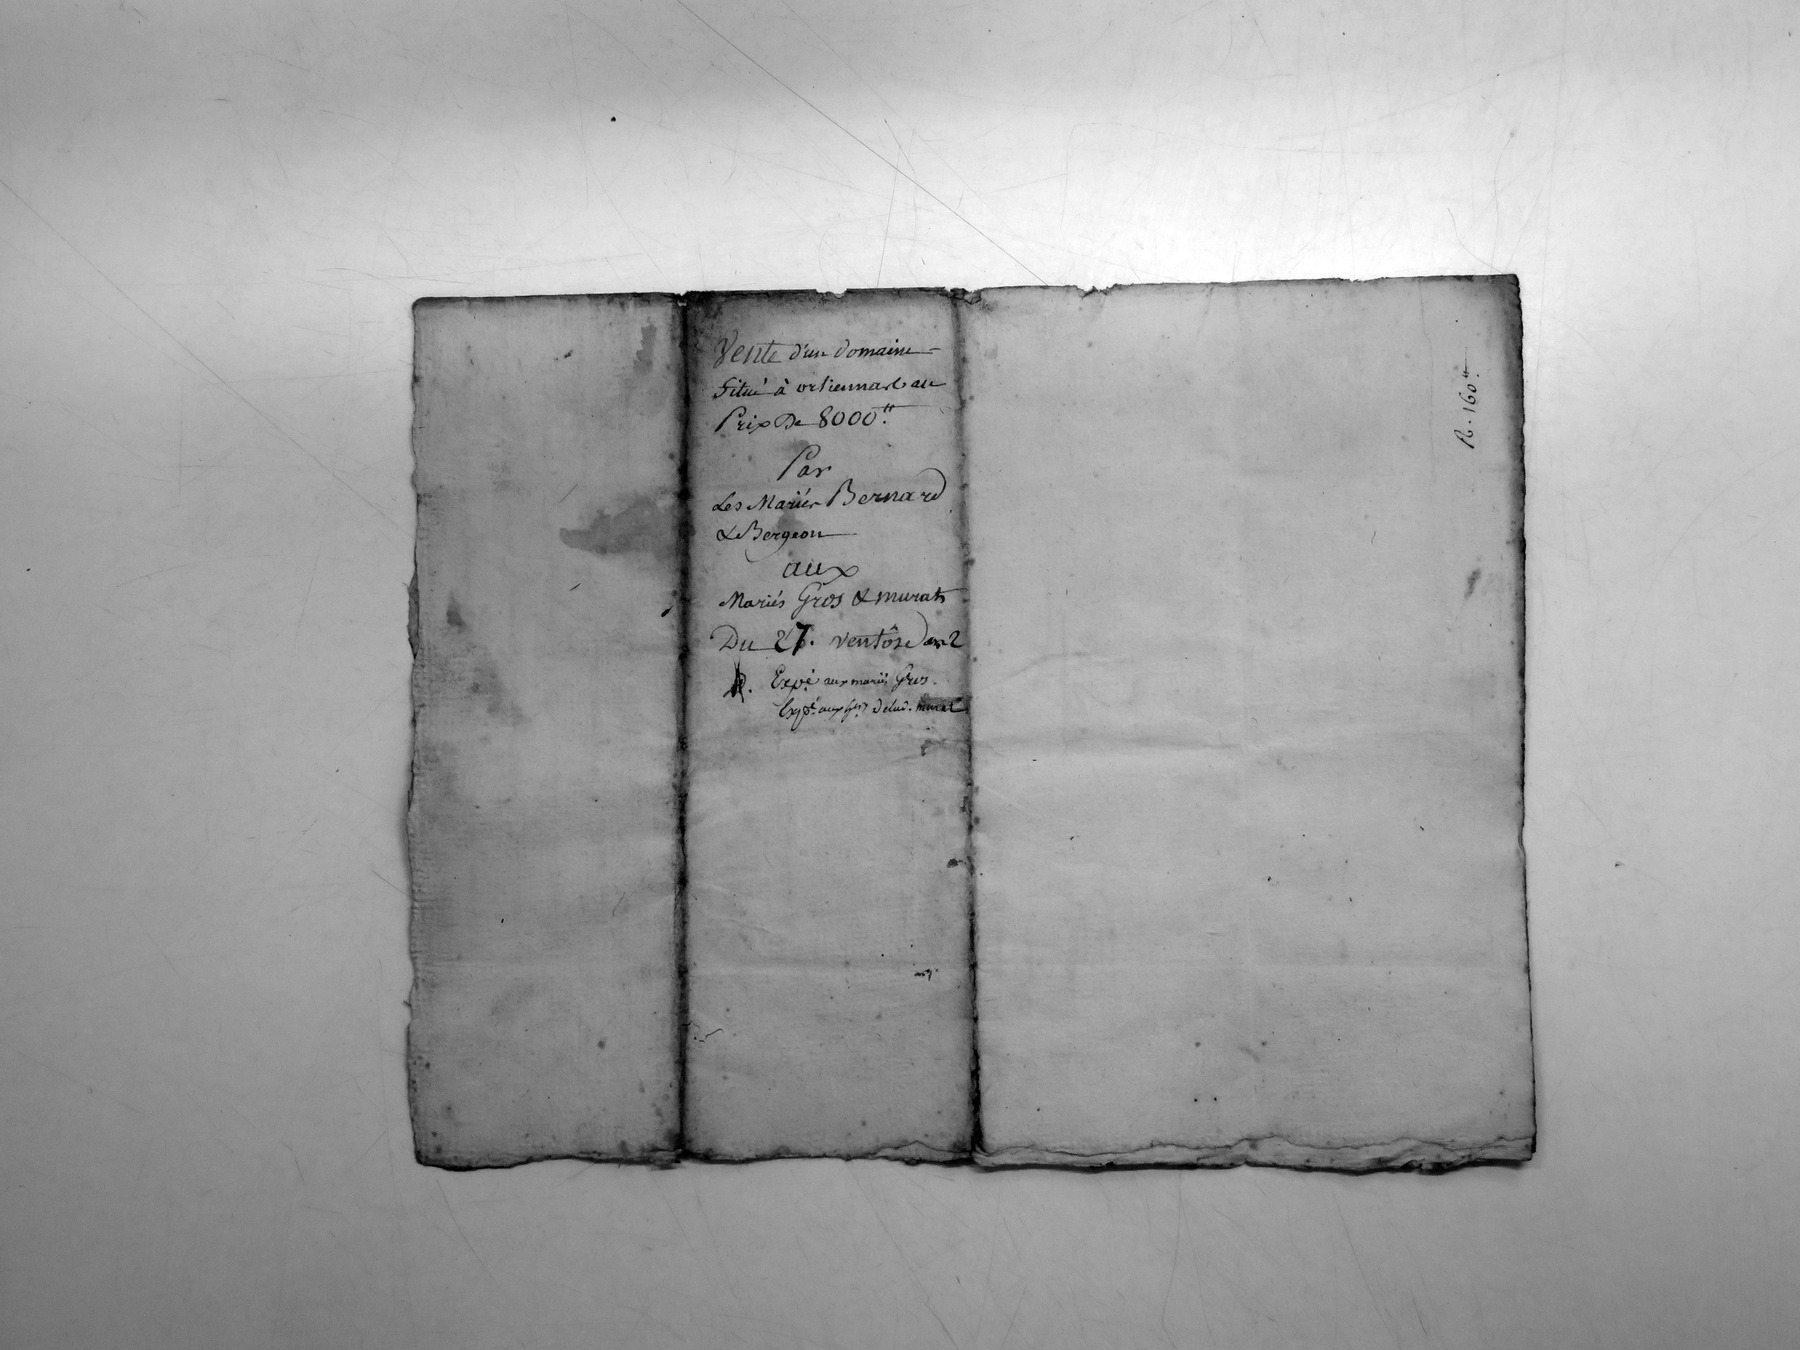 Vente d'un domaine
Situé à orliennas au
Prix De 8000.tt
Par
Les Mariés Bernard
& Bergeon
aux
Mariés Gros & murat
Du 27. ventôse an 2
R. Expé aux mariés Gros.
Expé. aux murat
R. 160.tt